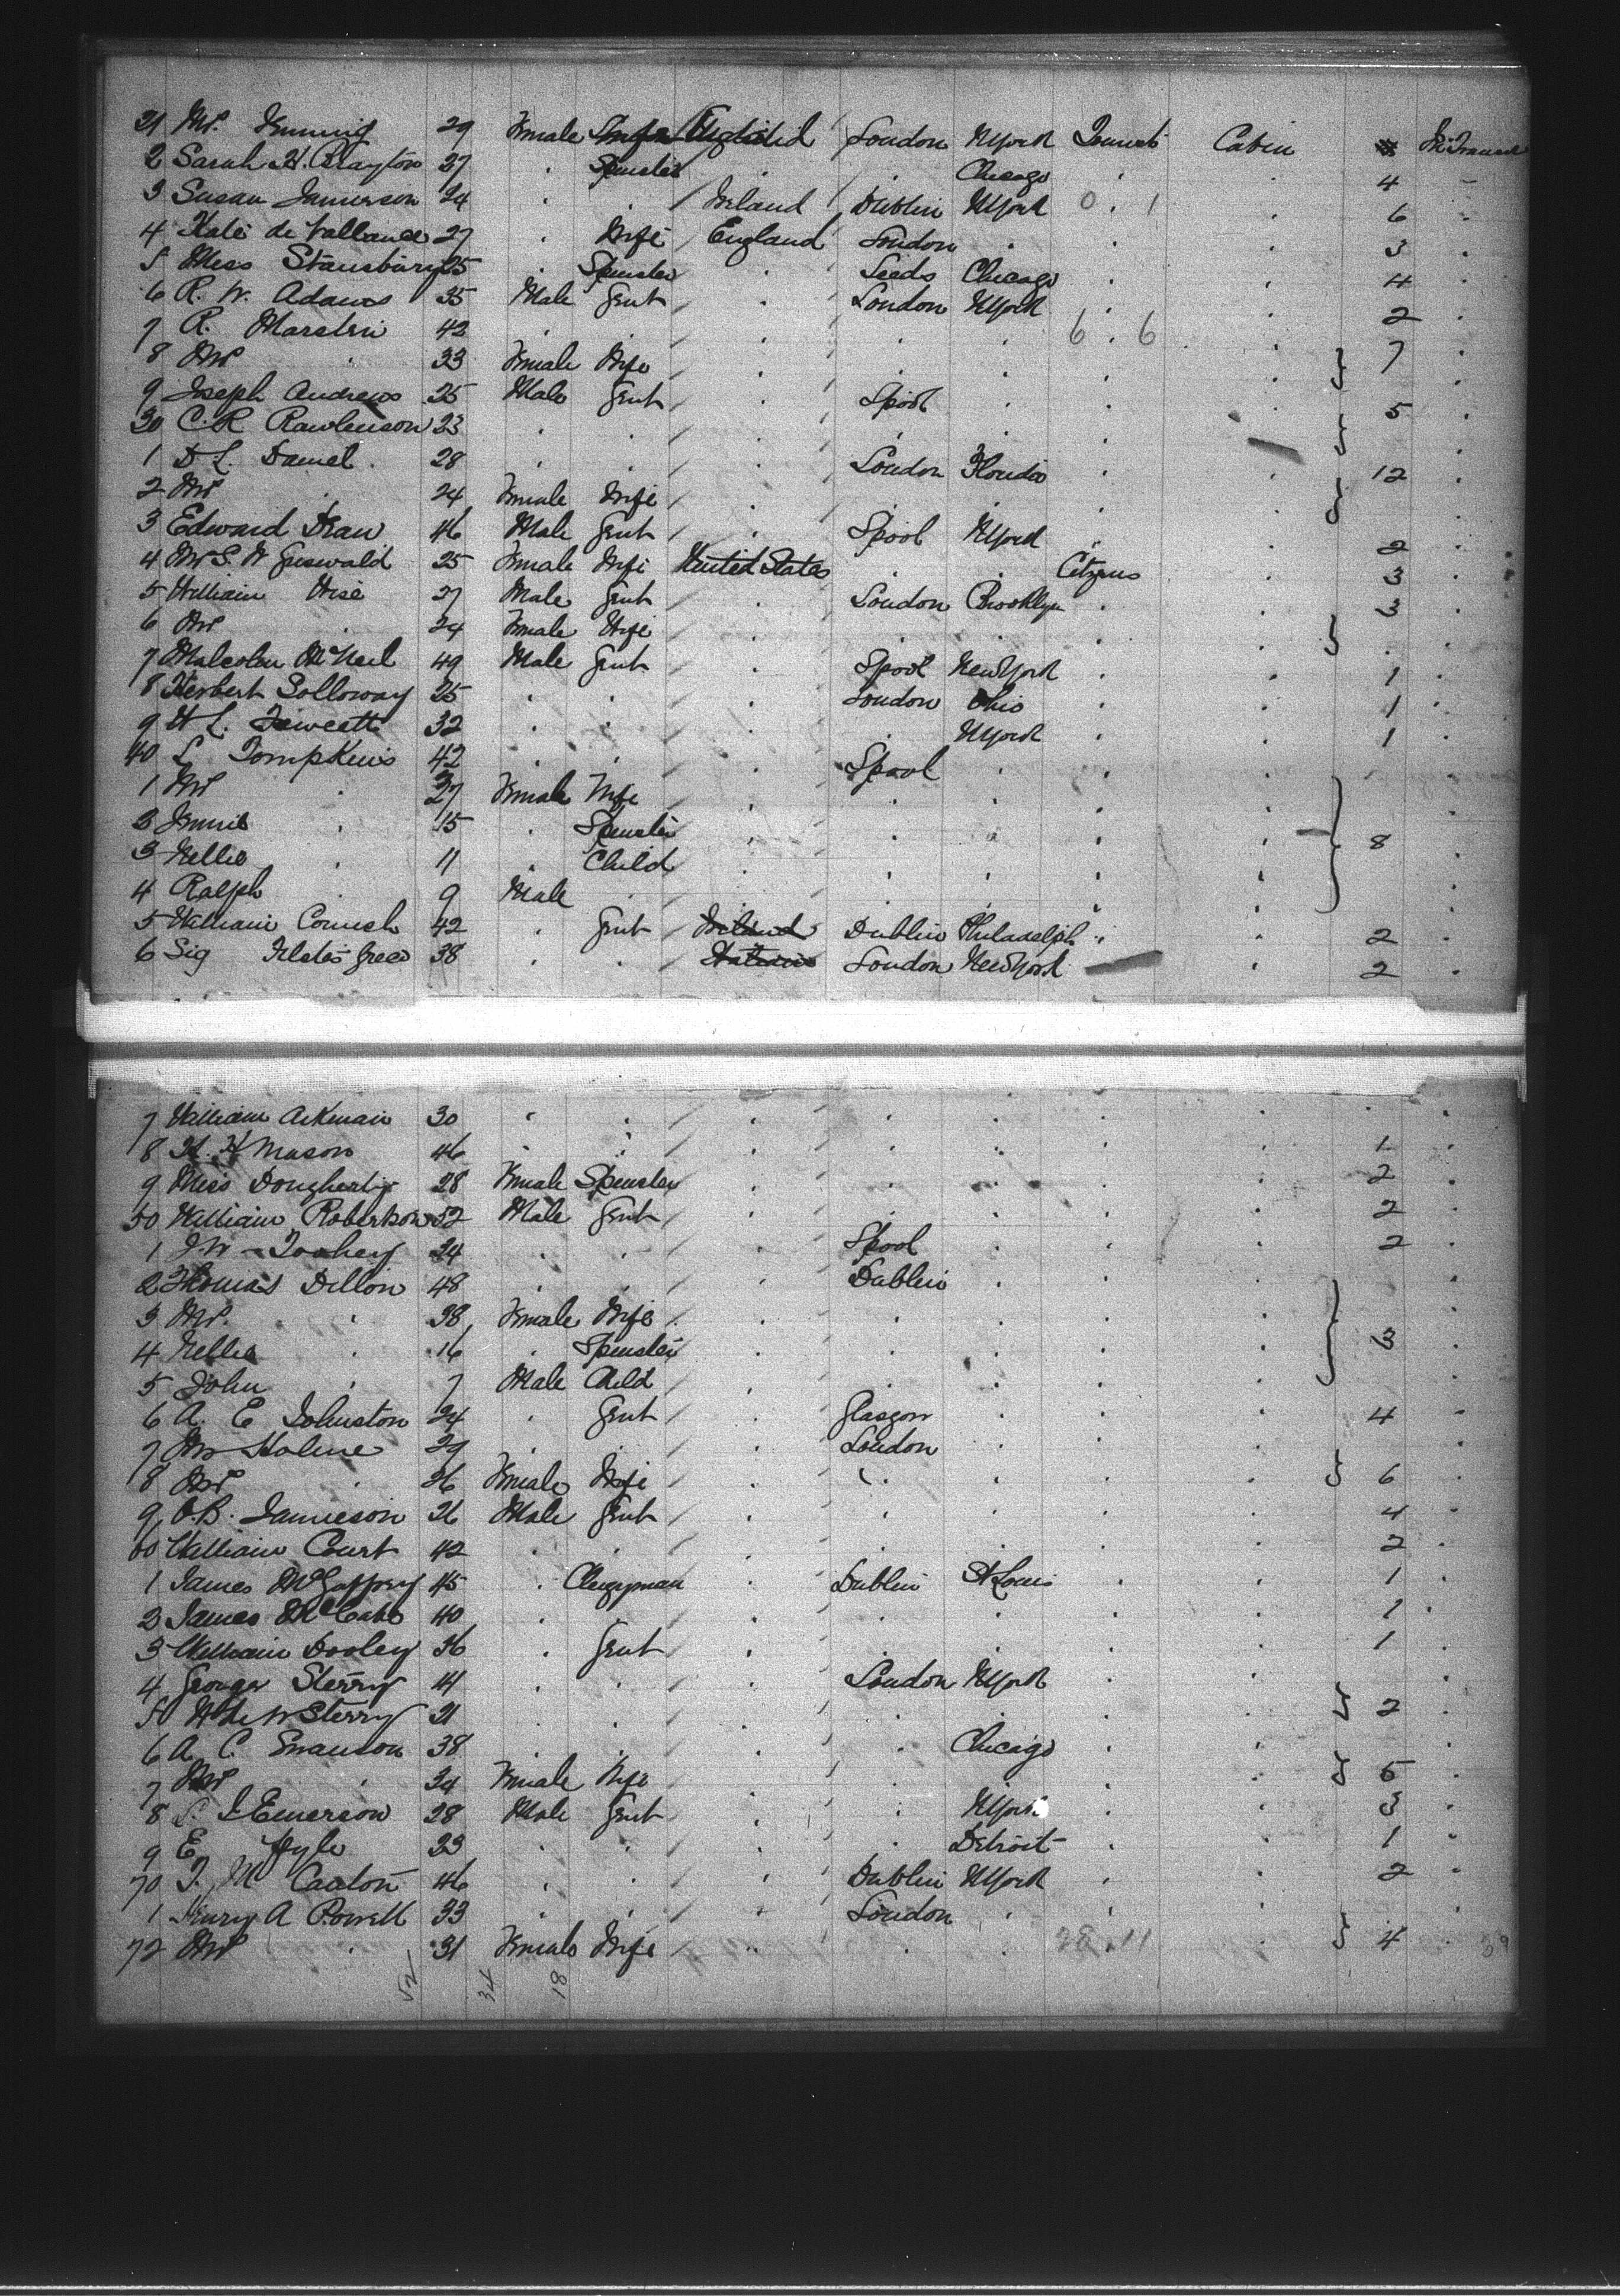 21 Mrs. 29 Female England London NYork Cabin In Transit
2 Sarah H. Brayton 27 " Spinster " " Chicago " " 4 "
3 Susan Jamieson 24 " " Ireland Dublin NYork 0 . 1 " 6 "
4 Kate de Vallance 27 " Wife England London " " 3
5 Miss Stansbury 25 " Spinster " Leeds Chicago " " 4 "
6 R. W. Adams 35 Male Gent " London NYork " 2 "
7 R. 42 " " " " " 6 . 6 "
8 Mrs " 33 Female Wife " " " " " } 7 "
9 Joseph Andrews 25 Male Gent " Lpool " " " 5 "
30 C. R Rawlenson 23 " " " " " " " }
1 D L. Daniel 28 " " " London Florida " " 12 "
2 Mrs " 24 Female Wife " " " " " } "
3 Edward 46 Male Gent " Lpool NYork " " 2 "
4 Mrs S. W Griswald 25 Female Wife United States " " Citzens " 3 "
5 William Wise 27 Male Gent " London Brooklyn " " 3 "
6 Mrs " 24 Female Wife " " " " " } "
7 Malcolm McNeil 49 Male Gent " Lpool New York " " 1 "
8 Herbert Solloway 25 " " " London Ohio " " 1 "
9 H L. Fawcett 32 " " " " NYork " " 1 "
40 L Tompkins 42 " " " Lpool " " " "
1 Mrs " 27 Female Wife " " " " " "
2 " 15 " Spinster " " " " " "
3 Nellie " 11 " Child " " " " " } 8 "
4 Ralph " 9 Male " " " " " " "
5 William Cornish 42 " Gent Ireland Dublin Philadelph " " 2 "
6 Sig Greco 38 " " London New York " 2 "
7 William Aikman 30 " " " " " " " "
8 H. H Mason 46 " " " " " " " 1 "
9 Miss Dougherty 28 Female Spinster " " " " " 2 "
50 William Robertson 52 Male Gent " " " " " 2 "
1 J W Toohey 24 " " " Lpool " " " 2 "
2 Thomas Dillon 48 " " " Dublin " " " "
3 Mrs. " 38 Female Wife " " " " " "
4 Nellie " 16 " Spinster " " " " " } 3 "
5 John " 7 Male Child " " " " " "
6 A. E Johnston 24 " Gent " Glasgow " " " 4 "
7 Mr Holme 29 " " " London " " " "
8 Mrs " 26 Female Wife " " " " " } 6 "
9 O. B. Jamieson 26 Male Gent " " " " " 4 "
60 William Court 42 " " " " " " " 2 "
1 James McGaffrey 45 " Clergyman " Dublin St Louis " " 1 "
2 James McCabe 40 " " " " " " " 1 "
3 William Dooley 36 " Gent " " " " " 1 "
4 George Sterry 44 " " " London NYork " " "
5 Sterry 21 " " " " " " " } 2 "
6 A. C. Swanson 38 " " " " Chicago " " "
7 Mrs " 34 Female Wife " " " " " } 5 "
8 Emerson 28 Male Gent " " NYork " " 3 "
9 E. 23 " " " " Detroit " " 1 "
70 J. M Caxton 46 " " " Dublin NYork " " 2 "
1 Henry A Powell 33 " " " London " " " "
72 Mrs " 31 Female Wife " " " 28 . 11 " } 4 " 39
52 34 18